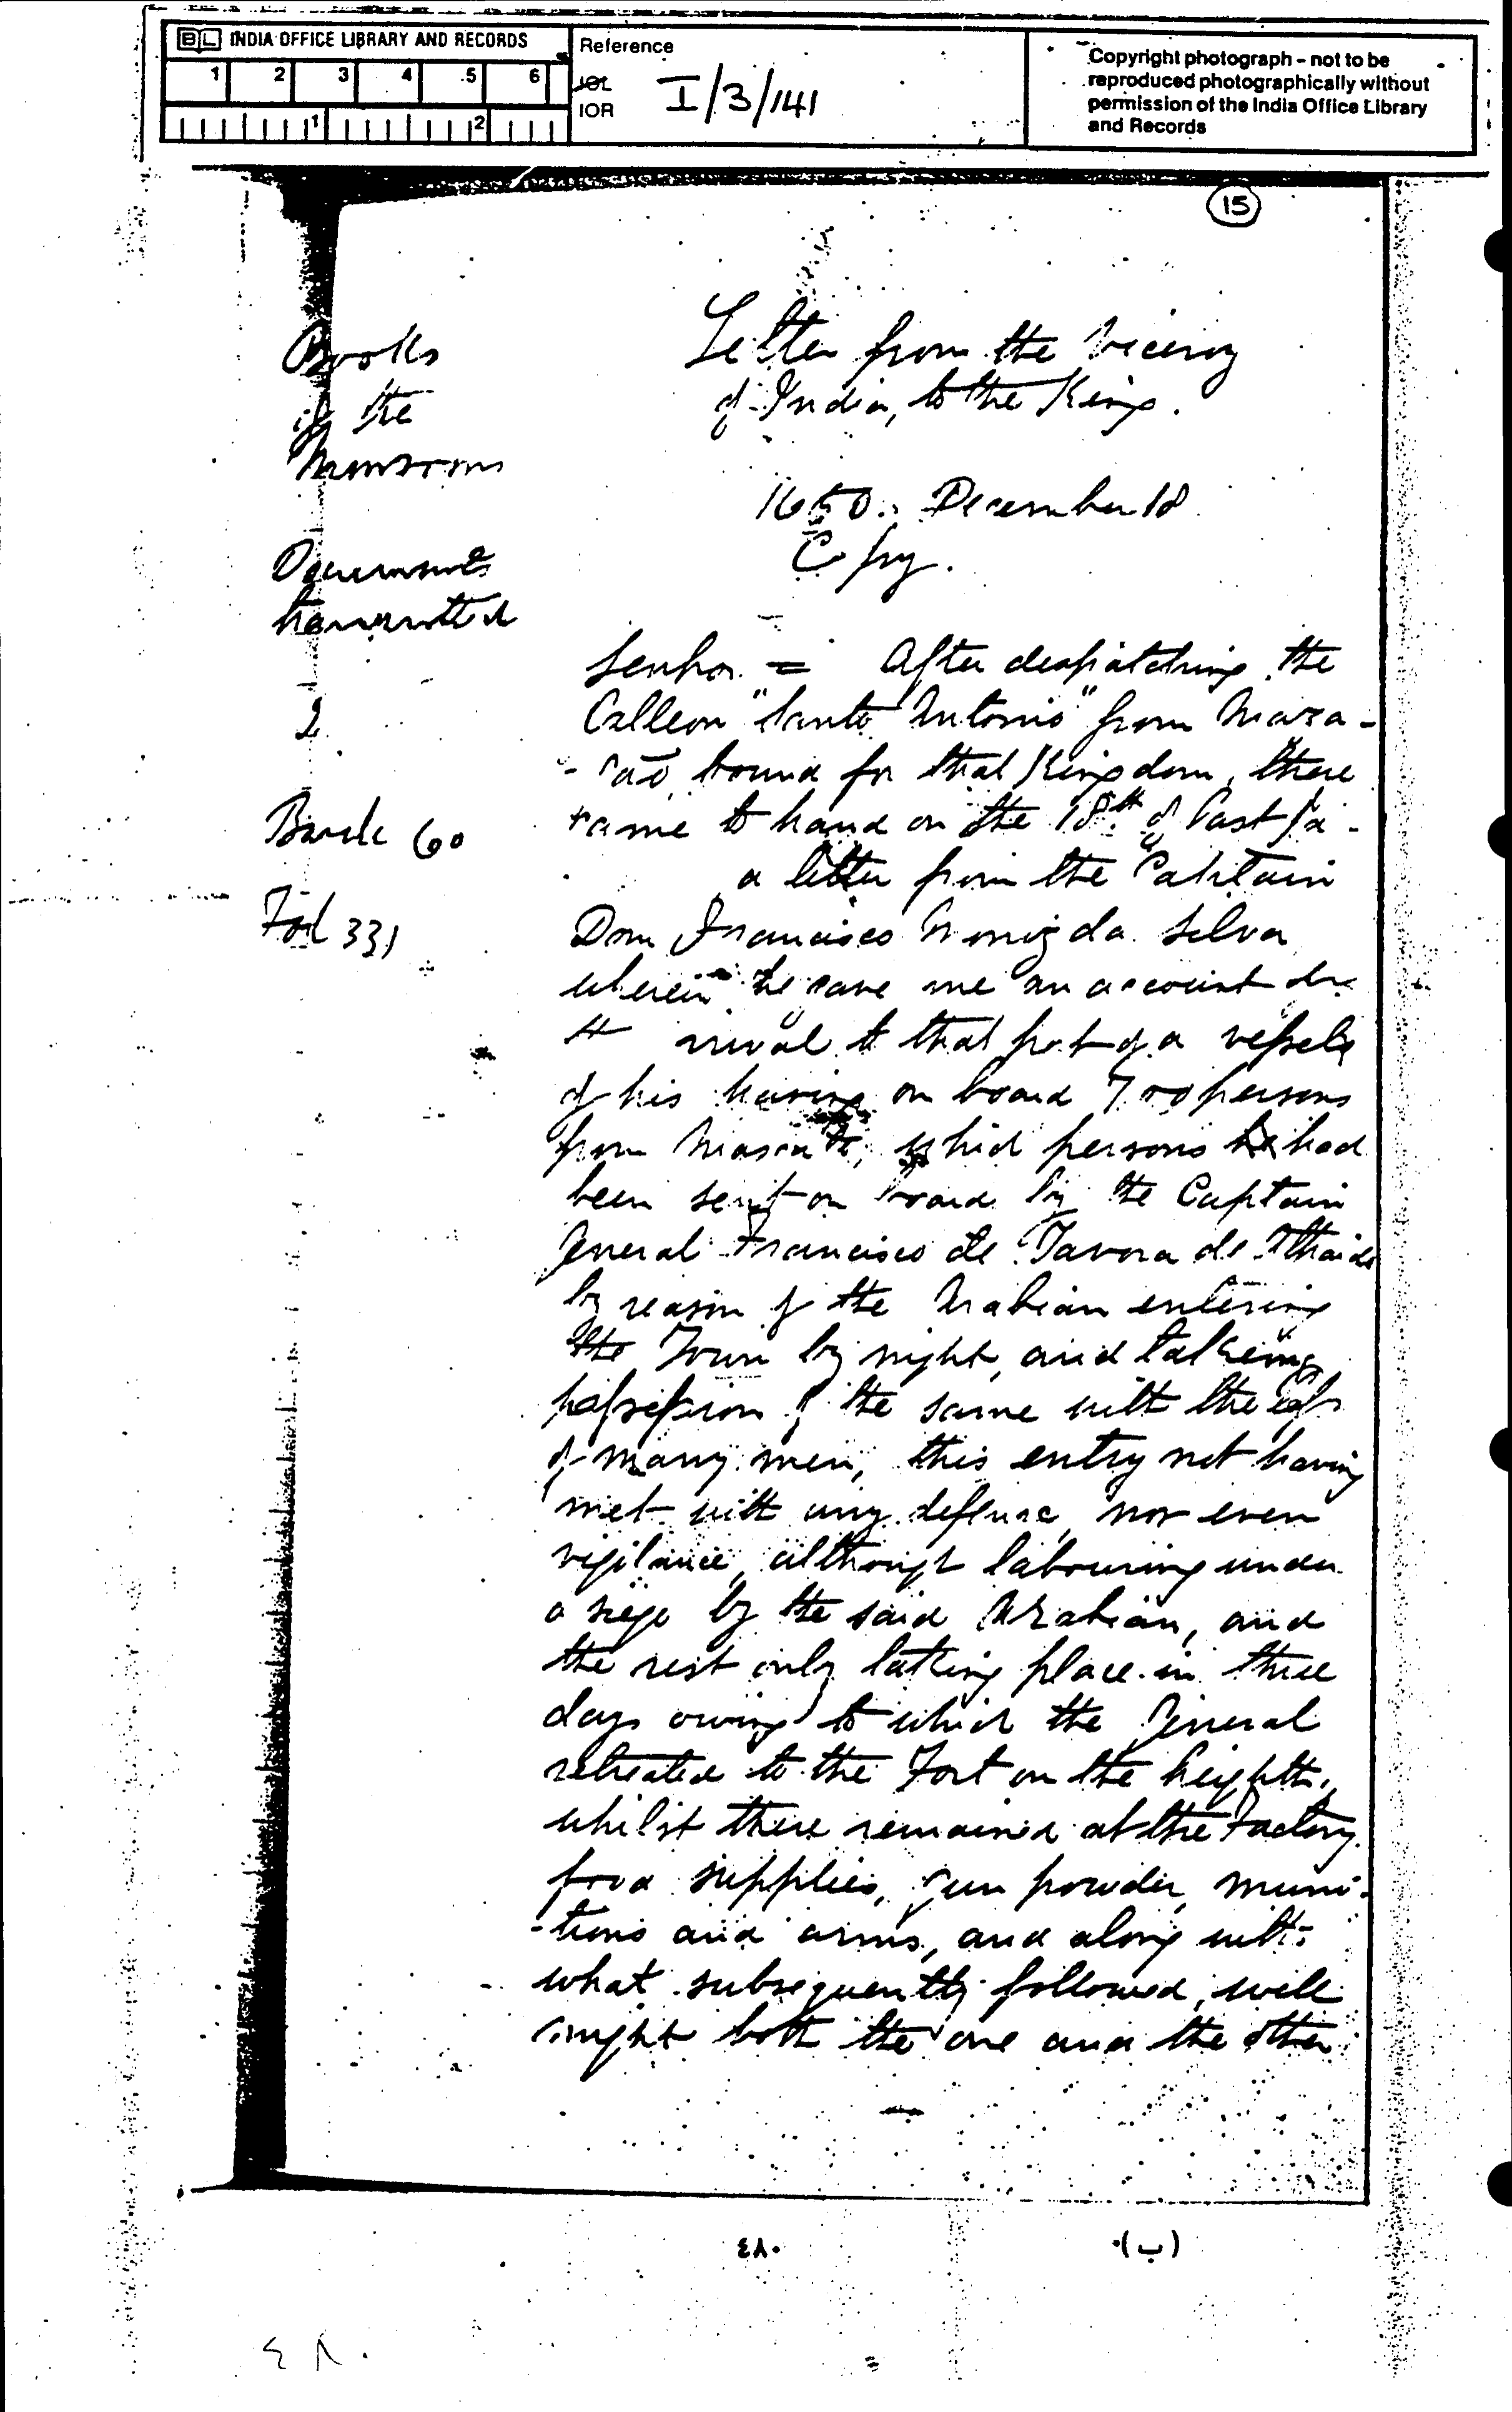 BL INDIA OFFICE LIBRARY AND RECORDS
1 2 3 4 5 6
1 2
Reference
IOL
IOR
I/3/141
Copyright photograph - not to be
reproduced photographically without
permission of the India Office Library
and Records
15
Books
of the
Monsoons
Documents
transmitted
2
Book 60
Fol 331
Letter from the Viceroy
of India, to the King.
1650. December 18
Copy.
Senhor = After despatching the
Galleon "Santo Antonio" from
bound for that Kingdom, there
came to hand on the 18th of last
a letter from the Captain
Dom Francisco Moniz da Silva
wherein he gave me an account
rival to that port of a vessel
of his having on board 700 persons
from Mascate, which persons had
been sent on board by the Captain
General Francisco de Tavora de Athaide
by reason of the Arabian entering
the Town by night, and taking
possession of the same with the loss
of many men, this entry not having
met with any defense, nor even
vigilance, although labouring under
a siege by the said Arabian, and
the rest only taking place in three
days owing to which the General
retreated to the Fort on the heights,
whilst there remained at the Factory
food supplies, gun powder, muni-
-tions and arms, and along with
what subsequently followed, will
might both the one and the other
٤٨٠
(ب)
٤٨٠